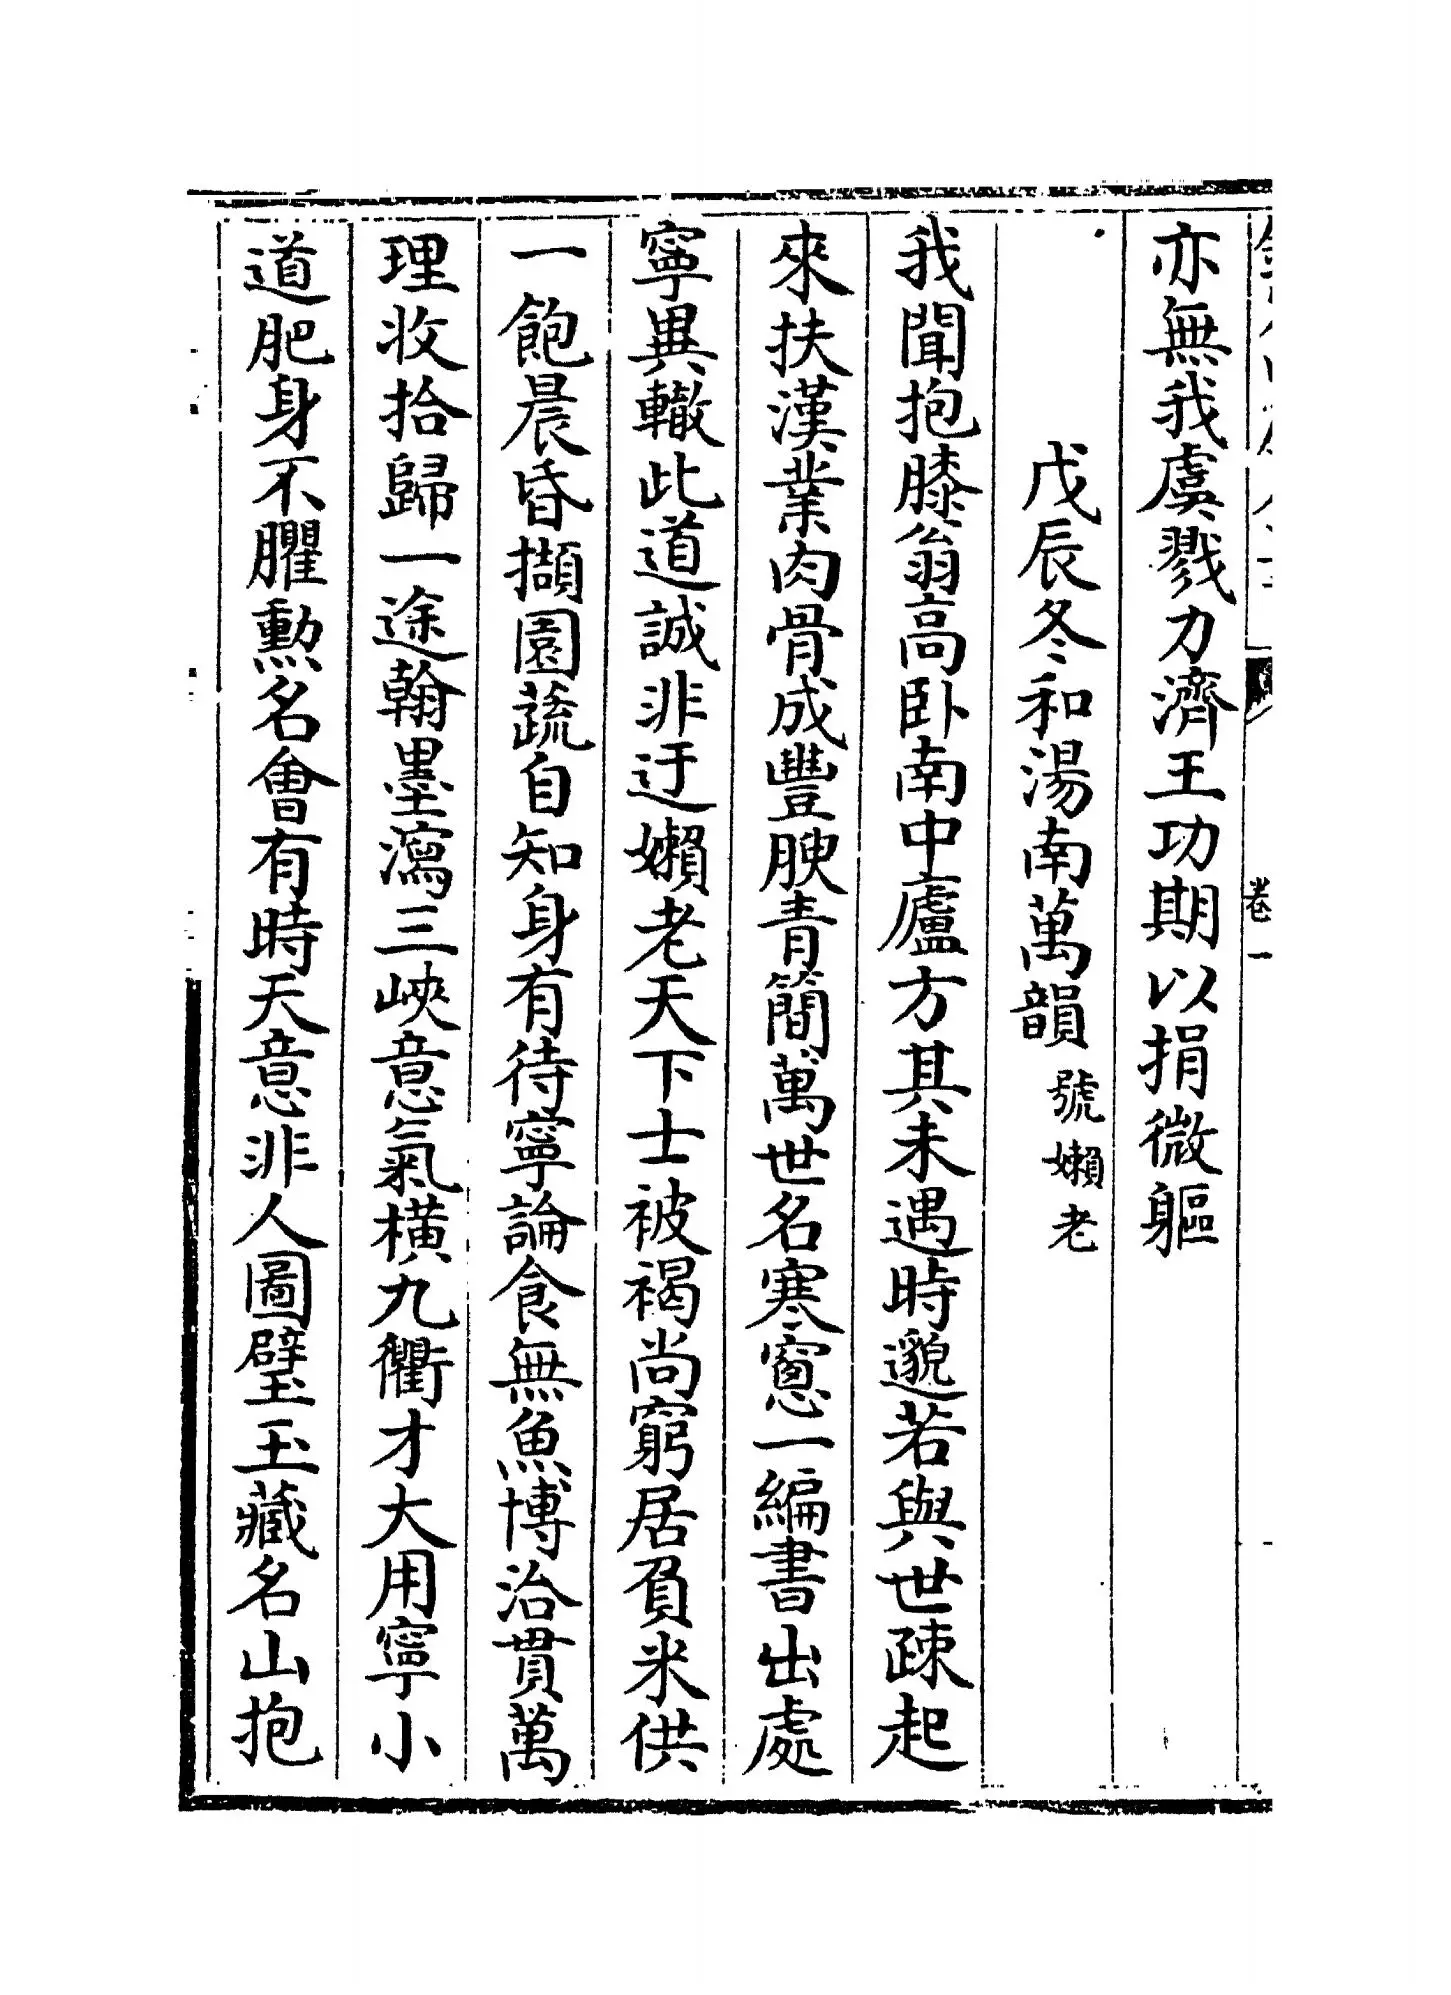 卷一
亦無我虞戮力濟王功期以捐微軀
戊辰冬和湯南萬韻號嬾老
我聞抱膝翁高卧南中廬方其未遇時邈若與世疎起
來扶漢業肉骨成豐腴青簡萬世名寒窻一編書出處
寧異轍此道誠非迂嬾老天下士被褐尚窮居負米供
一飽晨昏擷園蔬自知身有待寧論食無魚博洽貫萬
理收拾歸一途翰墨瀉三峽意氣橫九衢才大用寧小
道肥身不臞勲名會有時天意非人圖璧玉藏名山抱